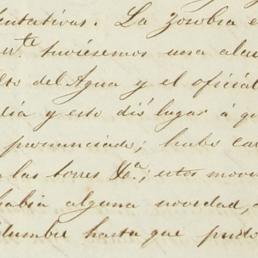 tentativas. La zozobra e
te tuviésemos una alar
lto del Agua y el oficial
dia y esto dió lugar á q
pronunciado; hubo ca
las torres &a; estos movi
habia alguna novedad,
dumbre hasta que pudo